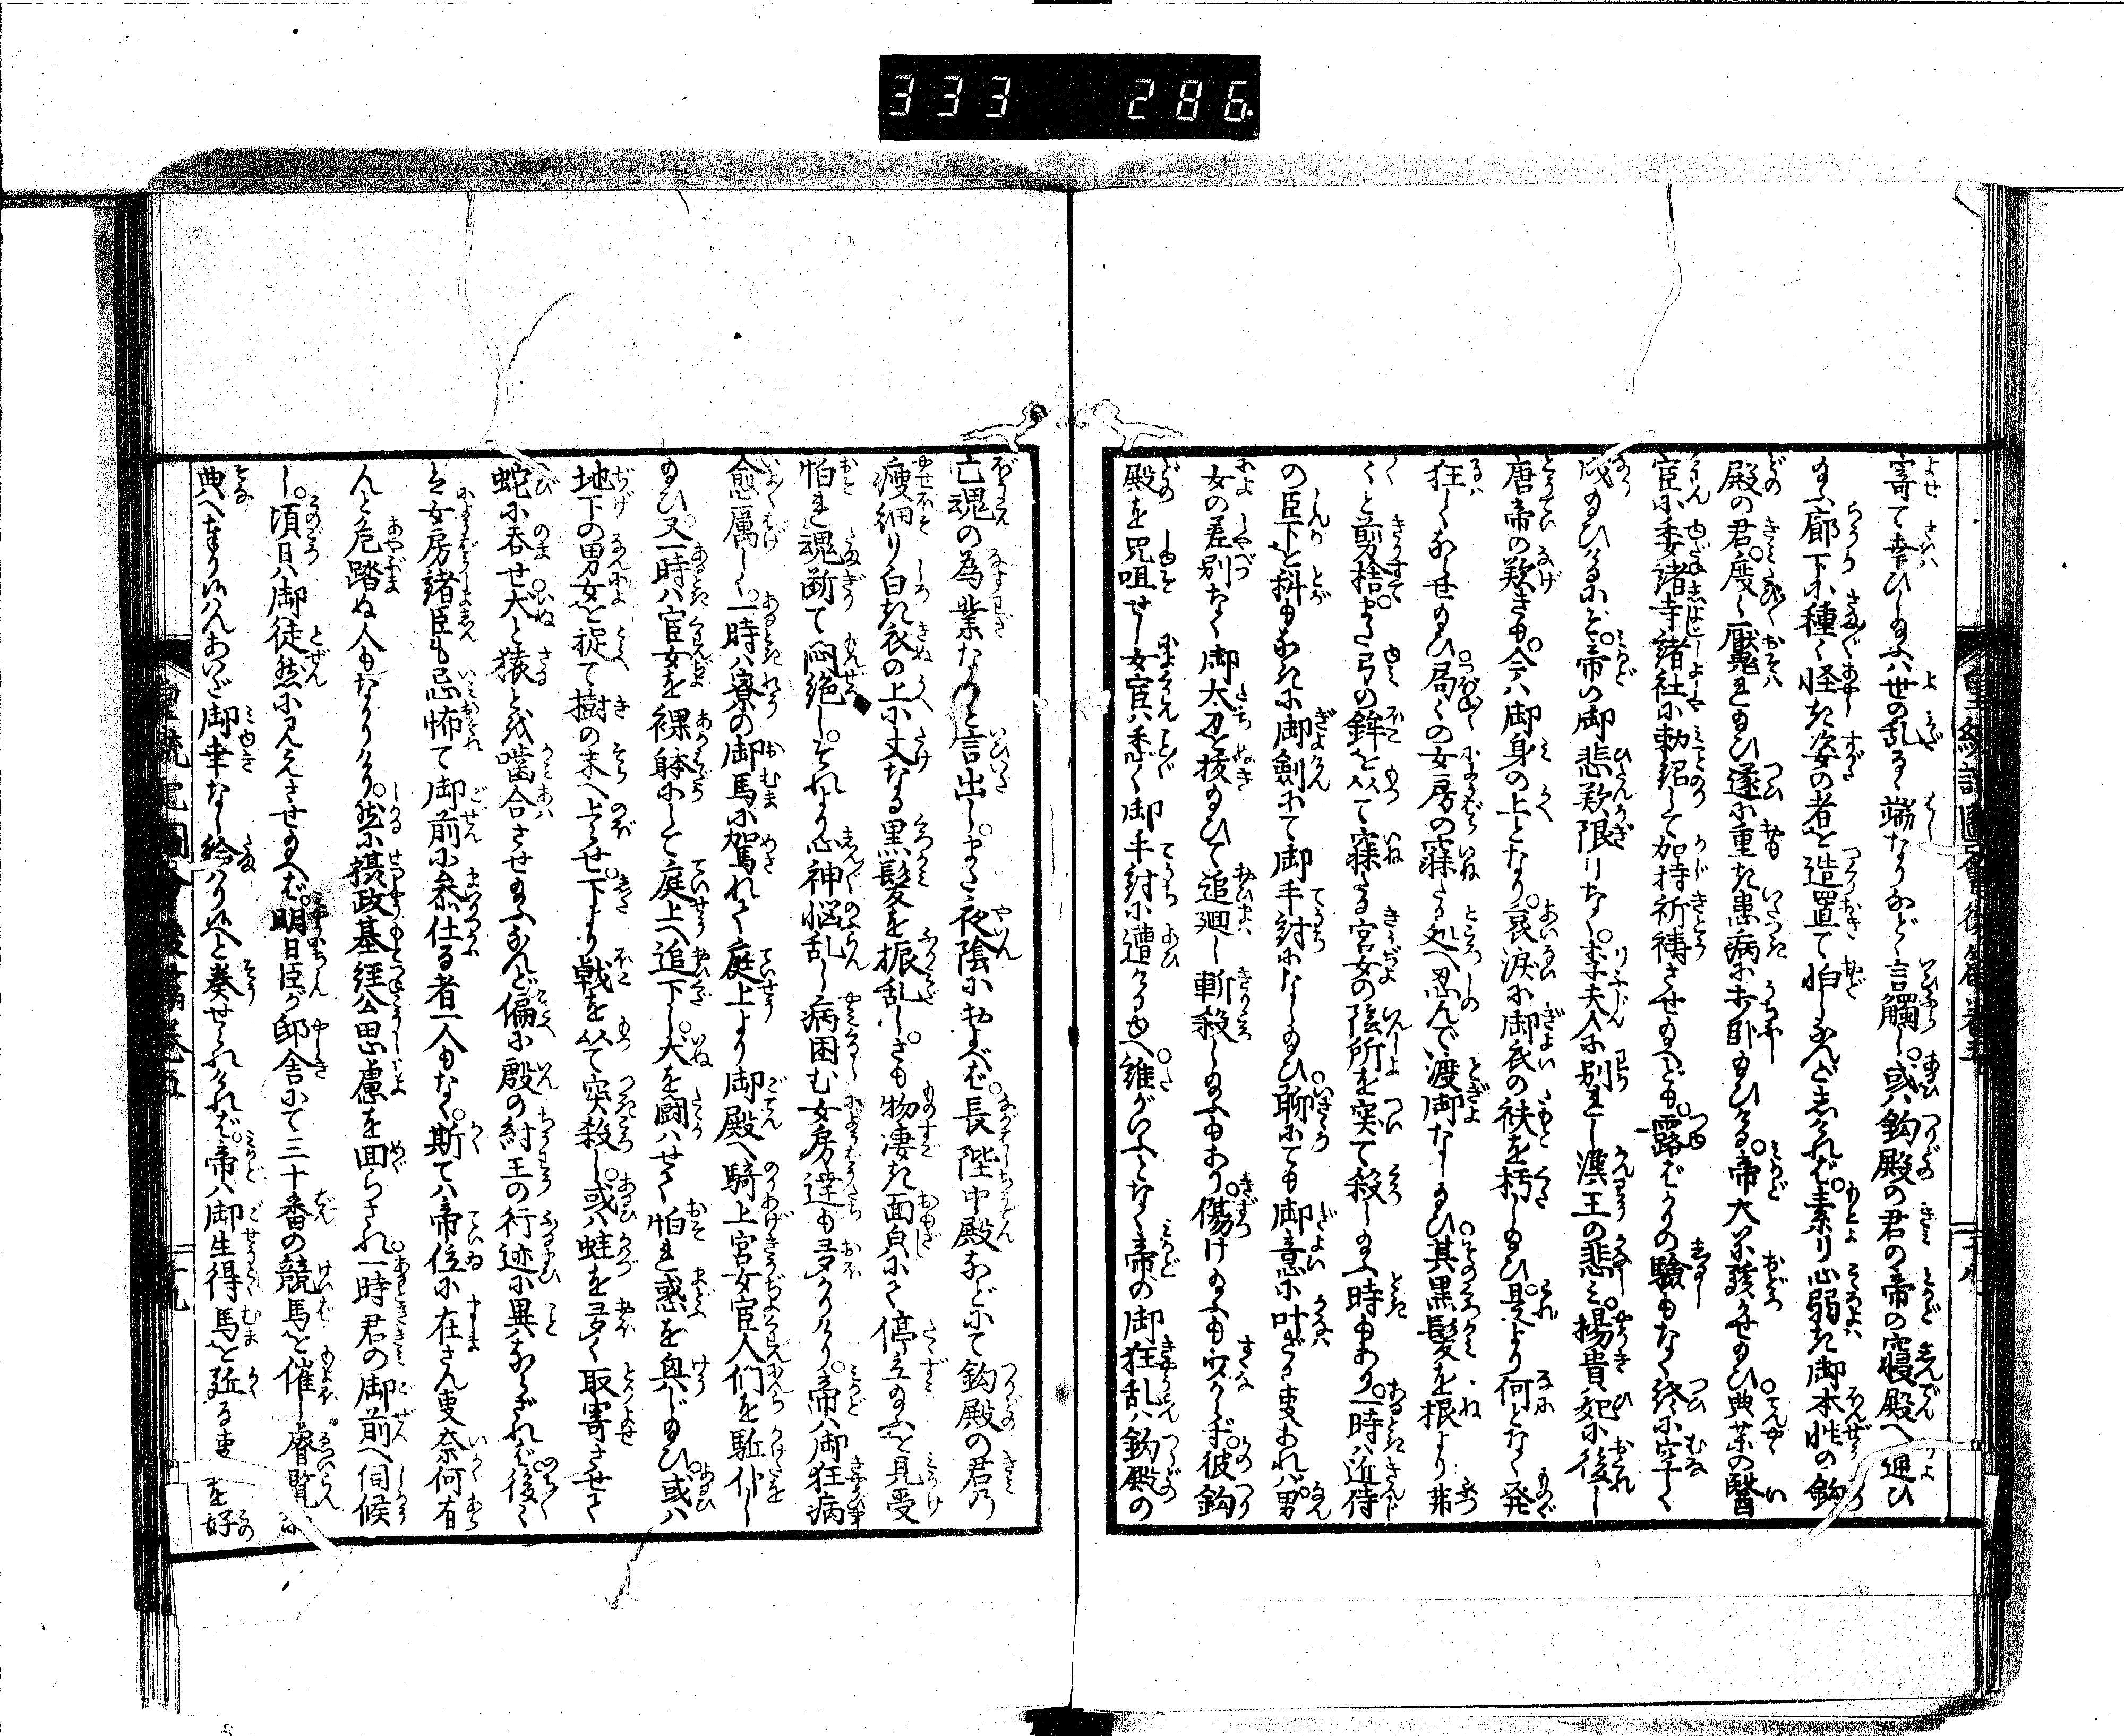 333 286
寄て幸ひし給ふハ世の乱るゝ端なりなどゝ言觸し。或ハ鈎殿の君の帝の寝殿へ通ひ
給ふ廊下に種〻怪き姿の者を造置て怕しなんどしければ。素り心弱き御本性の鈎
殿の君。度〻魘れ給ひ遂に重き患病に打臥給ひける。帝大に駭かせ給ひ典薬の醫
官に委諸寺諸社に勅詔して加持祈禱させ給へども。露ばかりの驗もなく終に空しく
成給ひけるにぞ。帝の御悲歎限りなく。李夫人に別れし漢王の悲ミ。楊貴妃に後し
唐帝の歎きも。今ハ御身の上となり。哀涙に御衣の袂を朽し給ひ。是より何となく発
狂しくなせ給ひ局〻の女房の寐たる処へ忍んで渡御なし給ひ其黒髪を根より弗
〻と剪捨。また弓の鉾を以て寐たる宮女の陰所を突て殺し給ふ時もあり。一時ハ近侍
の臣下を科もなきに御劍にて御手討になし給ひ聊にても御意に叶ざる事あれバ男
女の差別なく御太刀を抜給ひて追廻し斬殺し給ふもあり傷け給ふも少からず。彼鈎
殿を咒咀せし女官ハ悉く御手討に遭けるゆへ誰がいふとなく帝の御狂乱ハ鈎殿の
亡魂の為業なりと言出し。また夜陰におよべば。長陛中殿などにて鈎殿の君の
瘦細り白き衣の上に丈なる黒髪を振乱し。さも物凄き面色にて停立給ふと見受
怕れ魂断て悶絶し。それより心神悩乱し病困む女房達も多かりけり。帝ハ御狂病
愈厲しく。一時ハ寮の御馬に駕れて庭上より御殿へ騎上宮女官人們を駈仆し
給ひ又一時ハ官女を裸躰にして庭上へ追下し。犬を闘ハせて怕れ惑を興じ給ひ。或ハ
地下の男女を捉て樹の末へ上らせ。下より戟を以て突殺し。或ハ蛙を多く取寄させて
蛇に呑せ犬と猿とを噛合させ給ふなんど偏に殷の紂王の行迹に異ならざれば後〻
ハ女房諸臣も忌怖て御前に参仕る者一人もなく。斯てハ帝位に在さん事奈何有
んと危踏ぬ人もなかりけり。然に摂政基経公思慮を面らされ一時君の御前へ伺候
し。頃日ハ御徒然に見えさせ給へば。明日臣が邸舎にて三十番の競馬を催し。睿覧に
典へ奉り候ハんあいだ御幸なし給ハり候へと奏せられければ。帝ハ御生得馬を騁る事を好